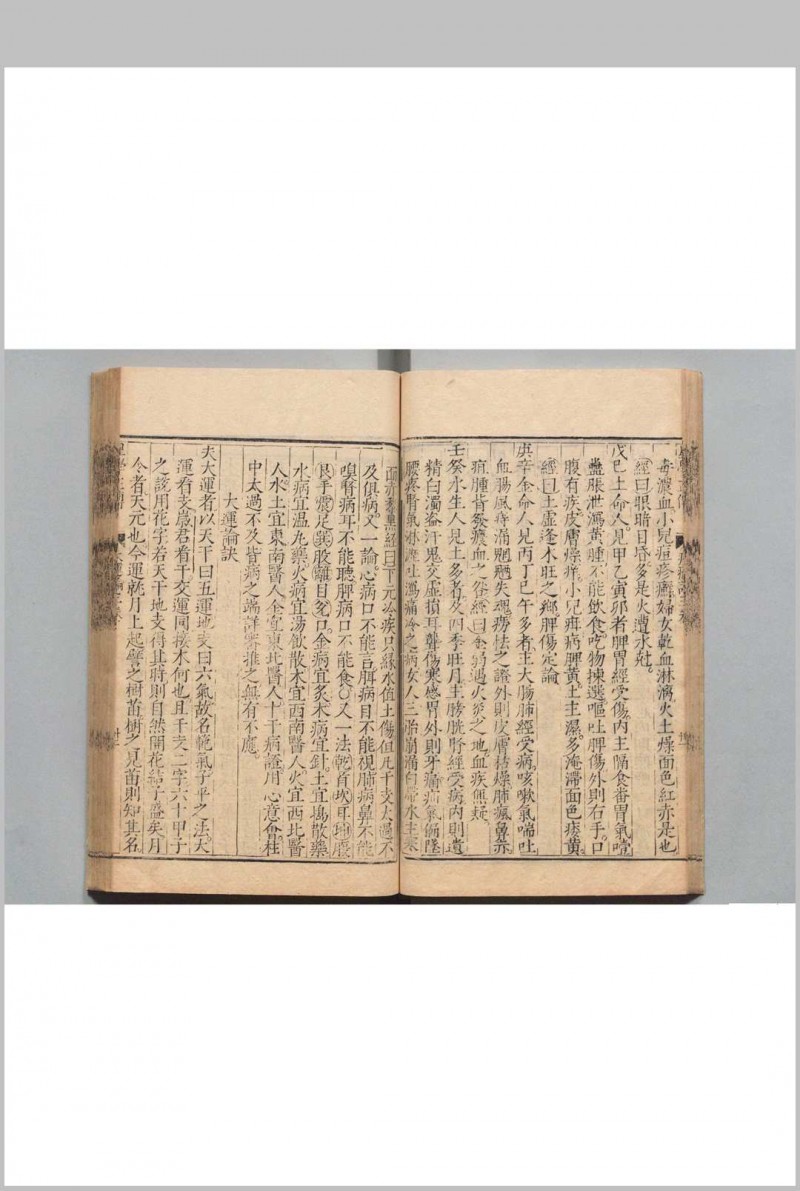 毒膿血小兒痘疹癬婦女乾血淋漓火土燥面色紅赤是也
經曰眼暗目昏多是火遭水尅
戊己土命人見甲乙寅卯者脾胃經受傷内主膈食畨胃氣噎
蠱脹泄瀉黃腫不能飲食吃物揀選嘔吐脾傷外則右手口
腹有疾皮膚燥痒小兒疳病脾黃土主濕多淹滯面色痿黃
經曰土虛逢木旺之鄉脾傷定論
庚辛金命人見丙丁巳午多者主大腸肺經受病咳嗽氣喘吐
血腸風痔漏魍魎失魂癆怯之證外則皮膚枯燥肺瘋鼻赤
疽腫背發膿血之咎經曰金弱遇火炎之地血疾無疑
壬癸水生人見土多者及四季旺月主膀胱腎經受病内則遺
精白濁盗汗鬼交虛損耳聾傷寒感冒外則牙痛疝氣偏墜
腰疼腎氣淋瀝吐瀉痛冷之病女人三胎崩漏白帶水主寒
面亦黎黑經曰下元冷疾只緣水值土傷但凡干支太過不
及俱病又一論心病口不能言肝病目不能視肺病鼻不能
嗅腎病耳不能聽脾病口不能食○又一法乾首坎耳坤腹
艮手震足巽股離目兌口金病宜灸木病宜針土宜塢散藥
水病宜温丸藥火病宜湯飲散木宜西南醫人火宜西北醫
人水土宜東南醫人金宜東北醫人十干病證用心意會柱
中太過不及皆病之端詳審推之無有不應
大運論訣
夫大運者以天干曰五運地支曰六氣故名範氣子平之法大
運看支歲君看干交運同接木何也且干支二字六十甲子
之説用花字若天干地支得其時則自然開花結子盛矣月
令者天元也今運就月上起譬之樹苗樹之見苗則知其名